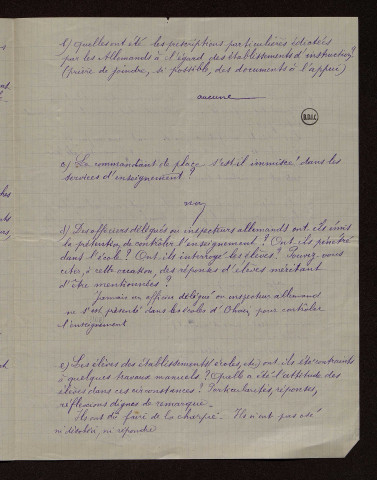 b) quelles ont été les prescriptions particulières édictées
par les Allemands à l'égard des établissements d'instruction?
(prière de joindre, si possible, des documents à l'appui)
aucune
B.D.I.C
c) Le commandant de place s'est-il immiscé dans les
services d'enseignement?
non
d) Des officiers délégués ou inspecteurs allemands ont-ils émis
la prétention de contrôler l'enseignement? Ont-ils pénétré
dans l'école? Ont-ils interrogé les élèves? Pouvez-vous
citer, à cette occasion, des réponses d'élèves méritant
d'être mentionnées?
Jamais un officier délégué ou inspecteur allemand
ne s'est présenté dans les écoles d' pour contrôler
l'enseignement
e) Les élèves des établissements (écoles, etc) ont-ils été contraints
à quelques travaux manuels? Quelle a été l'attitude des
élèves dans ces circonstances? Particularités, réponses,
réflexions dignes de remarque.
Ils ont dû faire de la charpie. Ils n'ont pas osé
ni désobéir, ni répondre